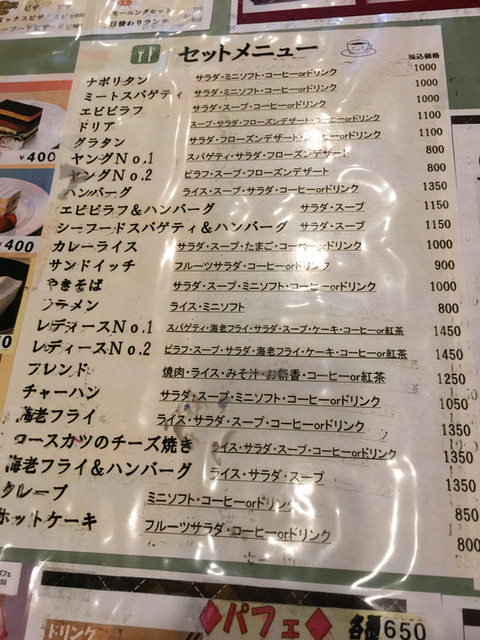 モーニングセット
日替わりランチ
セットメニュー 税込価格
ナポリタン サラダ・ミニソフト・コーヒーorドリンク 1000
ミートスパゲティ サラダ・ミニソフト・コーヒーorドリンク 1000
エビピラフ サラダ・スープ・コーヒーorドリンク 1000
ドリア スープ・サラダ・フローズンデザート・コーヒーorドリンク 1100
グラタン サラダ・フローズンデザート・コーヒーorドリンク 1100
ヤングNo.1 スパゲティ・サラダ・フローズンデザート 800
ヤングNo.2 ピラフ・スープ・フローズンデザート 800
ハンバーグ ライス・スープ・サラダ・コーヒーorドリンク 1350
エビピラフ&ハンバーグ サラダ・スープ 1150
シーフードスパゲティ&ハンバーグ サラダ・スープ 1150
カレーライス サラダ・スープ・たまご・コーヒーorドリンク 1000
サンドイッチ フルーツサラダ・コーヒーorドリンク 900
やきそば サラダ・スープ・ミニソフト・コーヒーorドリンク 1000
ラーメン ライス・ミニソフト 800
レディースNo.1 スパゲティ・海老フライ・サラダ・スープ・ケーキ・コーヒーor紅茶 1450
レディースNo.2 ピラフ・スープ・サラダ・海老フライ・ケーキ・コーヒーor紅茶 1450
フレンド 焼肉・ライス・みそ汁・お新香・コーヒーor紅茶 1250
チャーハン サラダ・スープ・ミニソフト・コーヒーorドリンク 1050
海老フライ ライス・サラダ・スープ・コーヒーorドリンク 1350
ロースカツのチーズ焼き ライス・サラダ・スープ・コーヒーorドリンク 1350
海老フライ&ハンバーグ ライス・サラダ・スープ 1350
クレープ ミニソフト・コーヒーorドリンク 850
ホットケーキ フルーツサラダ・コーヒーorドリンク 800
¥400
¥400
パフェ
♦パフェ♦ 各種650
ドリンク